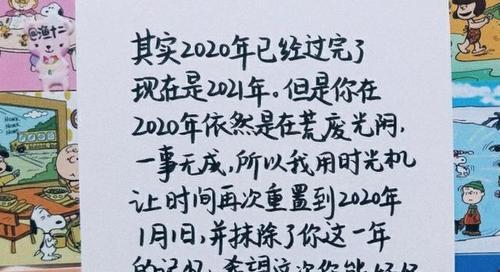 @渔十二
其实2020年已经过完了
现在是2021年。但是你在
2020年依然是在荒废光阴,
一事无成,所以我用时光机
让时间再次重置到2020年
1月1日,并抹除了你这一年
的记忆,希望这次你能好好